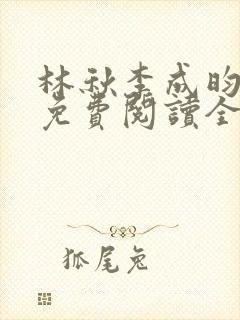 林秋李成昀
免費閱讀全
狐尾兔